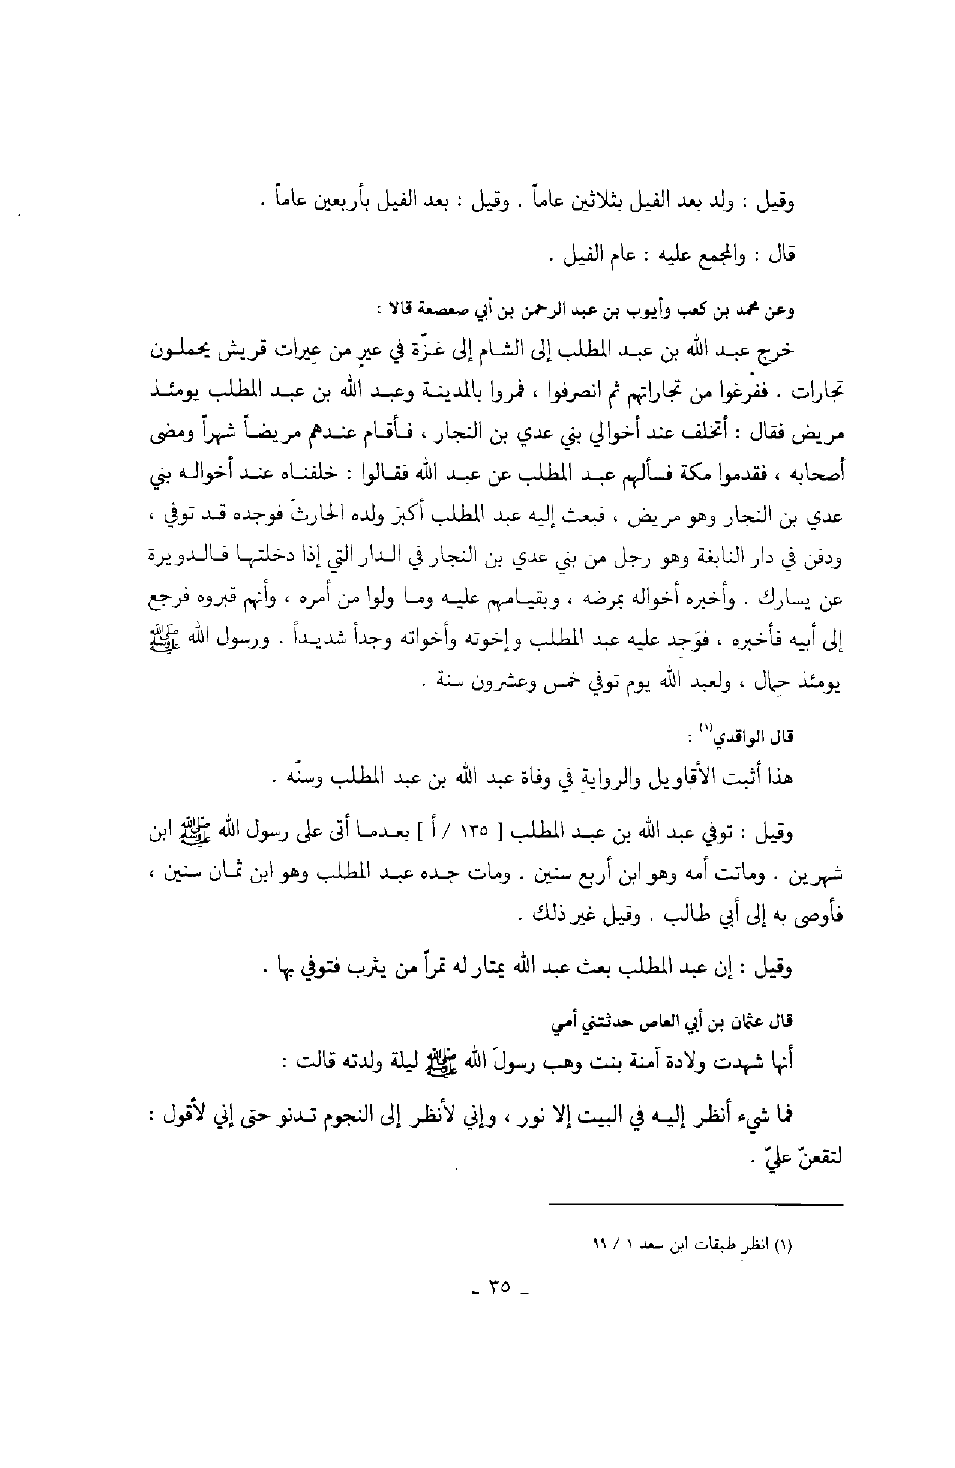 وقيل : ولد بعد الفيل بثلاثين عاماً . وقيل : بعد الفيل بأربعين عاماً .
قال : والمجمع عليه : عام الفيل .
وعن محمد بن كعب وأيوب بن عبد الرحمن بن أبي صعصعة قالا :
خرج عبد الله بن عبد المطلب إلى الشام إلى غزّة في عيرٍ من عِيرات قريش يحملون
تجارات . ففَرغوا من تجاراتهم ثم انصرفوا ، فمروا بالمدينة وعبد الله بن عبد المطلب يومئذ
مريض فقال : أتخلف عند أخوالي بني عدي بن النجار ، فأقام عندهم مريضاً شهراً ومضى
أصحابه ، فقدموا مكة فسألهم عبد المطلب عن عبد الله فقالوا : خلفناه عند أخواله بني
عدي بن النجار وهو مريض ، فبعث إليه عبد المطلب أكبرَ ولده الحارثَ فوجده قد توفي ،
ودفن في دار النابغة وهو رجل من بني عدي بن النجار في الدار التي إذا دخلتها فالدويرة
عن يسارك . وأخبره أخواله بمرضه ، وبقيامهم عليه وما ولوا من أمره ، وأنهم قبروه فرجع
إلى أبيه فأخبره ، فوَجد عليه عبد المطلب وإخوته وأخواته وجداً شديداً . ورسول الله ﷺ
يومئذ حمل ، ولعبد الله يوم توفي خمس وعشرون سنة .
قال الواقدي(١) :
هذا أثبت الأقاويل والرواية في وفاة عبد الله بن عبد المطلب وسنّه .
وقيل : توفي عبد الله بن عبد المطلب [ ١٣٥ / أ ] بعدما أتى على رسول الله ﷺ ابن
شهرين . وماتت أمه وهو ابن أربع سنين . ومات جده عبد المطلب وهو ابن ثمان سنين ،
فأوصى به إلى أبي طالب . وقيل غير ذلك .
وقيل : إن عبد المطلب بعث عبد الله يمتار له تمراً من يثرب فتوفي بها .
قال عثمان بن أبي العاص حدثتني أمي
أنها شهدت ولادة آمنة بنت وهب رسولَ الله ﷺ ليلة ولدته قالت :
فما شيء أنظر إليه في البيت إلا نور ، وإني لأنظر إلى النجوم تدنو حتى إني لأقول :
لتقعنّ عليّ .
(١) انظر طبقات ابن سعد ١ / ٩٩
ـ ٣٥ ـ